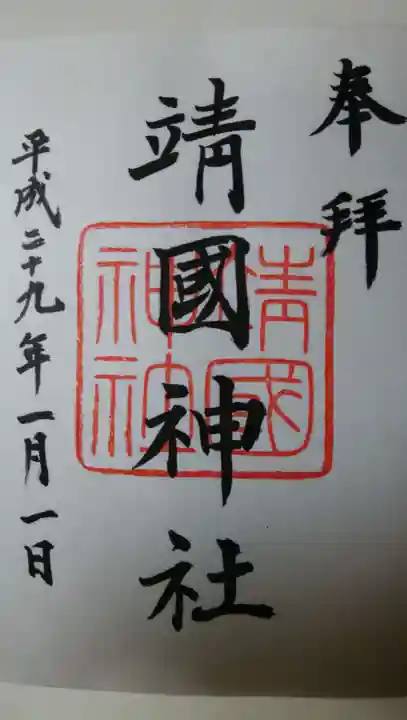 奉拝
靖國神社
靖國
神社
平成二十九年一月一日